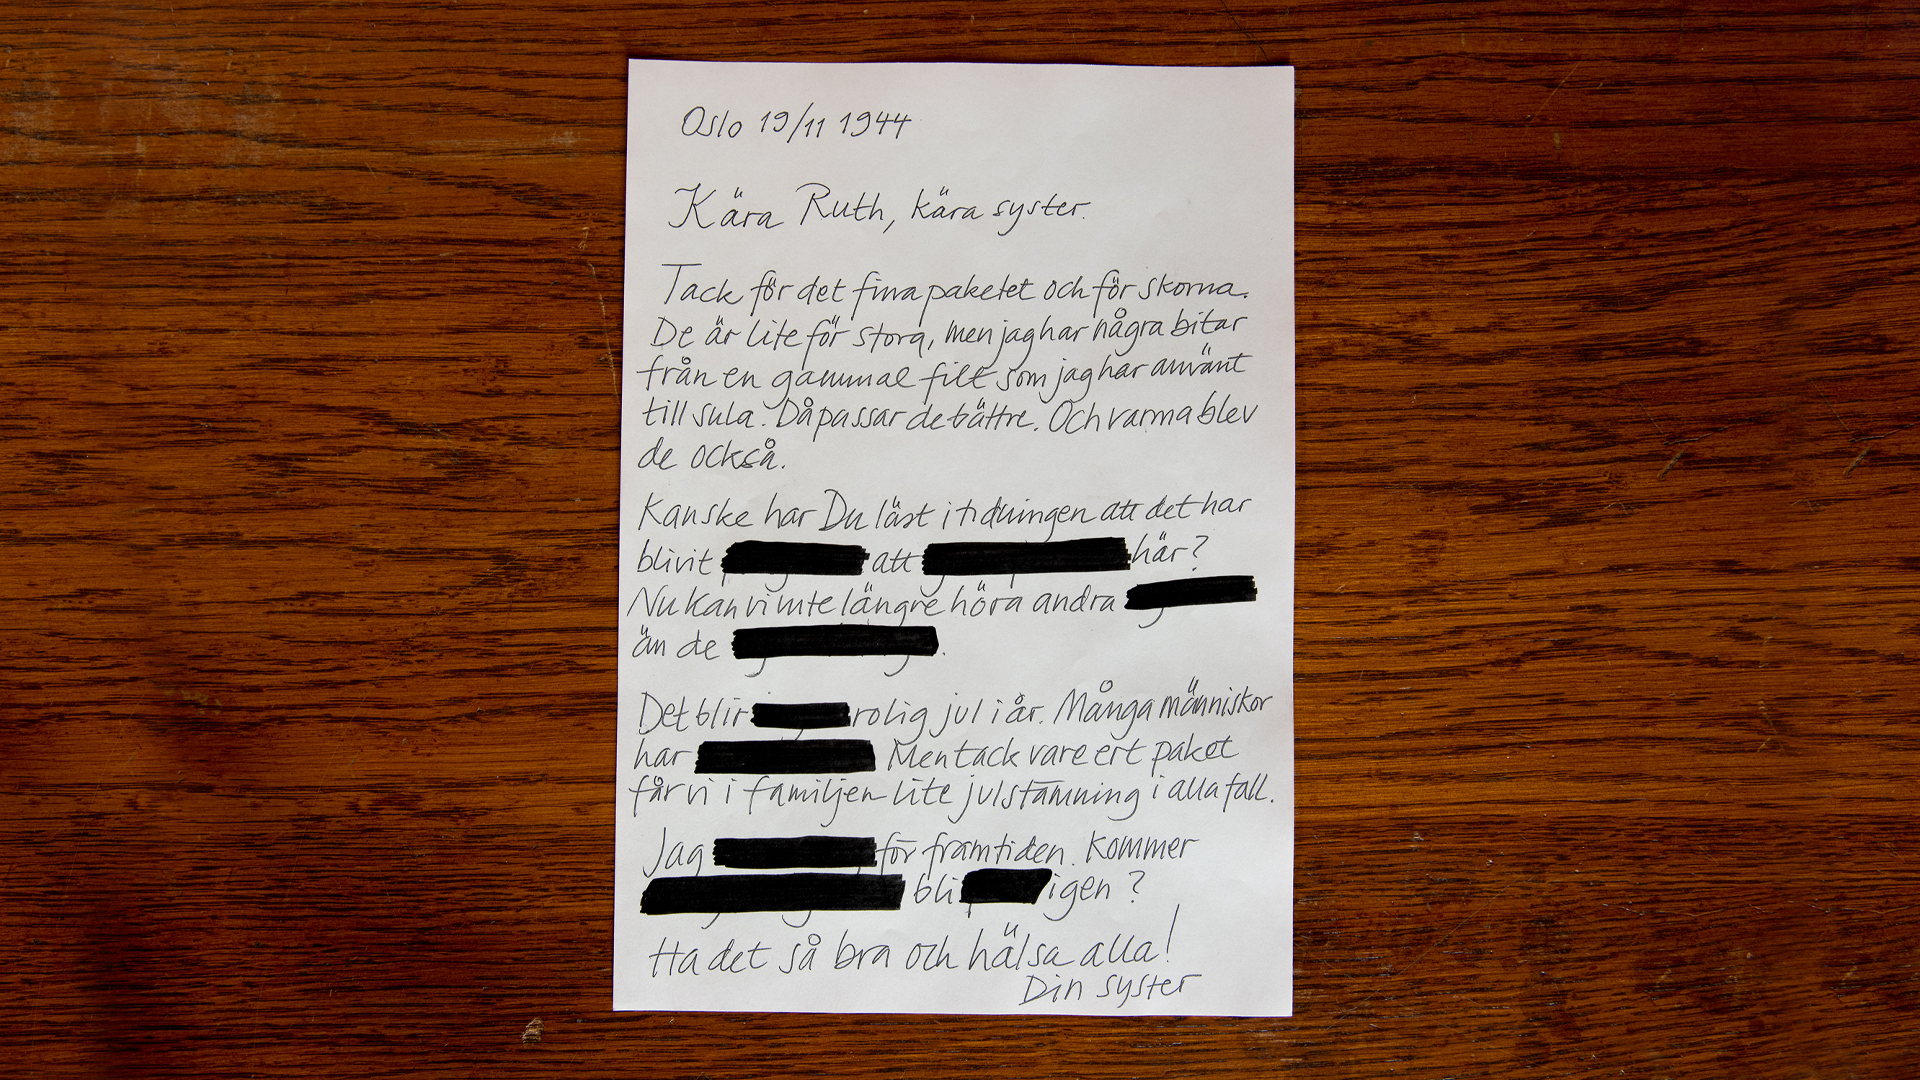 Oslo 19/11 1944
Kära Ruth, kära syster.
Tack för det fina paketet och för skorna.
De är lite för stora, men jag har några bitar
från en gammal filt som jag har använt
till sula. Då passar de bättre. Och varma blev
de också.
Kanske har Du läst i tidningen att det har
blivit att här?
Nu kan vi inte längre höra andra
än de .
Det blir rolig jul i år. Många människor
har Men tack vare ert paket
får vi i familjen lite julstämning i alla fall.
Jag för framtiden. Kommer
bli igen?
Ha det så bra och hälsa alla!
Din syster